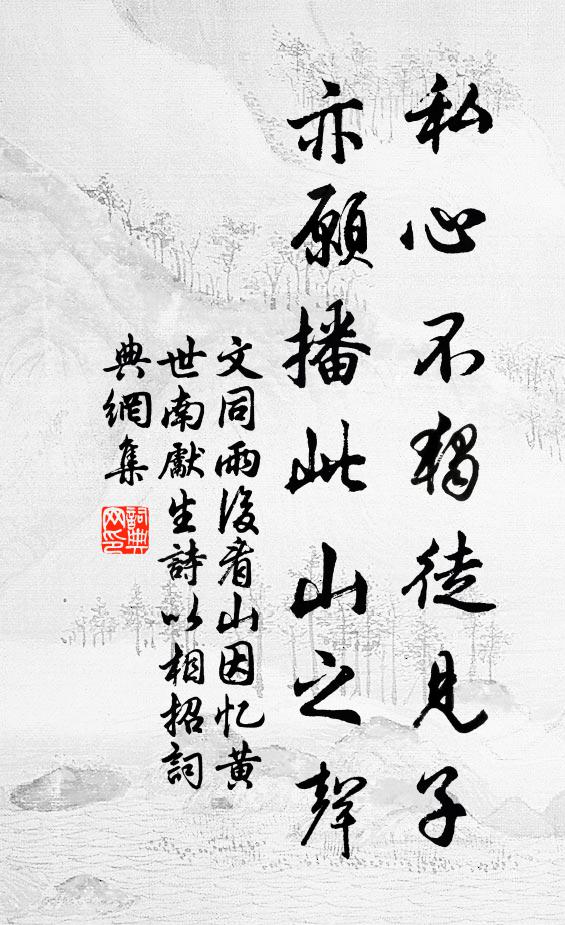 私心不獨徒見子
亦願播此山之聲
文同雨後看山因忆黄
世南獻生詩以相招詞
典網集
詞典网印